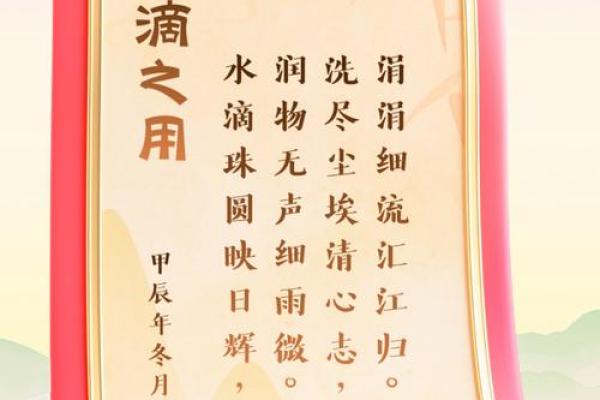 滴之用
水滴珠圆映日辉，
润物无声细雨微。
洗尽尘埃清心志，
涓涓细流汇江归。
甲辰年冬月